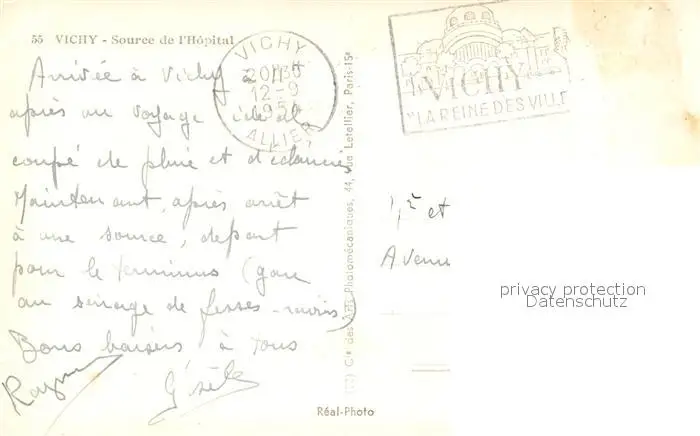 55 VICHY - Source de l'Hôpital
VICHY
12-9
ALLIER
VICHY
"LA REINE DES VILLE
Arrivée à Vichy à
après un voyage idéal
coupé de pluie et d'éclaircies
Maintenant, après arrêt
à une source, départ
pour le terminus (gare
au de fesses
Bons baisers à tous
Gisèle
Mr et
Avenue
privacy protection
Datenschutz
Cie des Arts Photomécaniques, 44, rue Letellier, Paris-15e
Réal-Photo